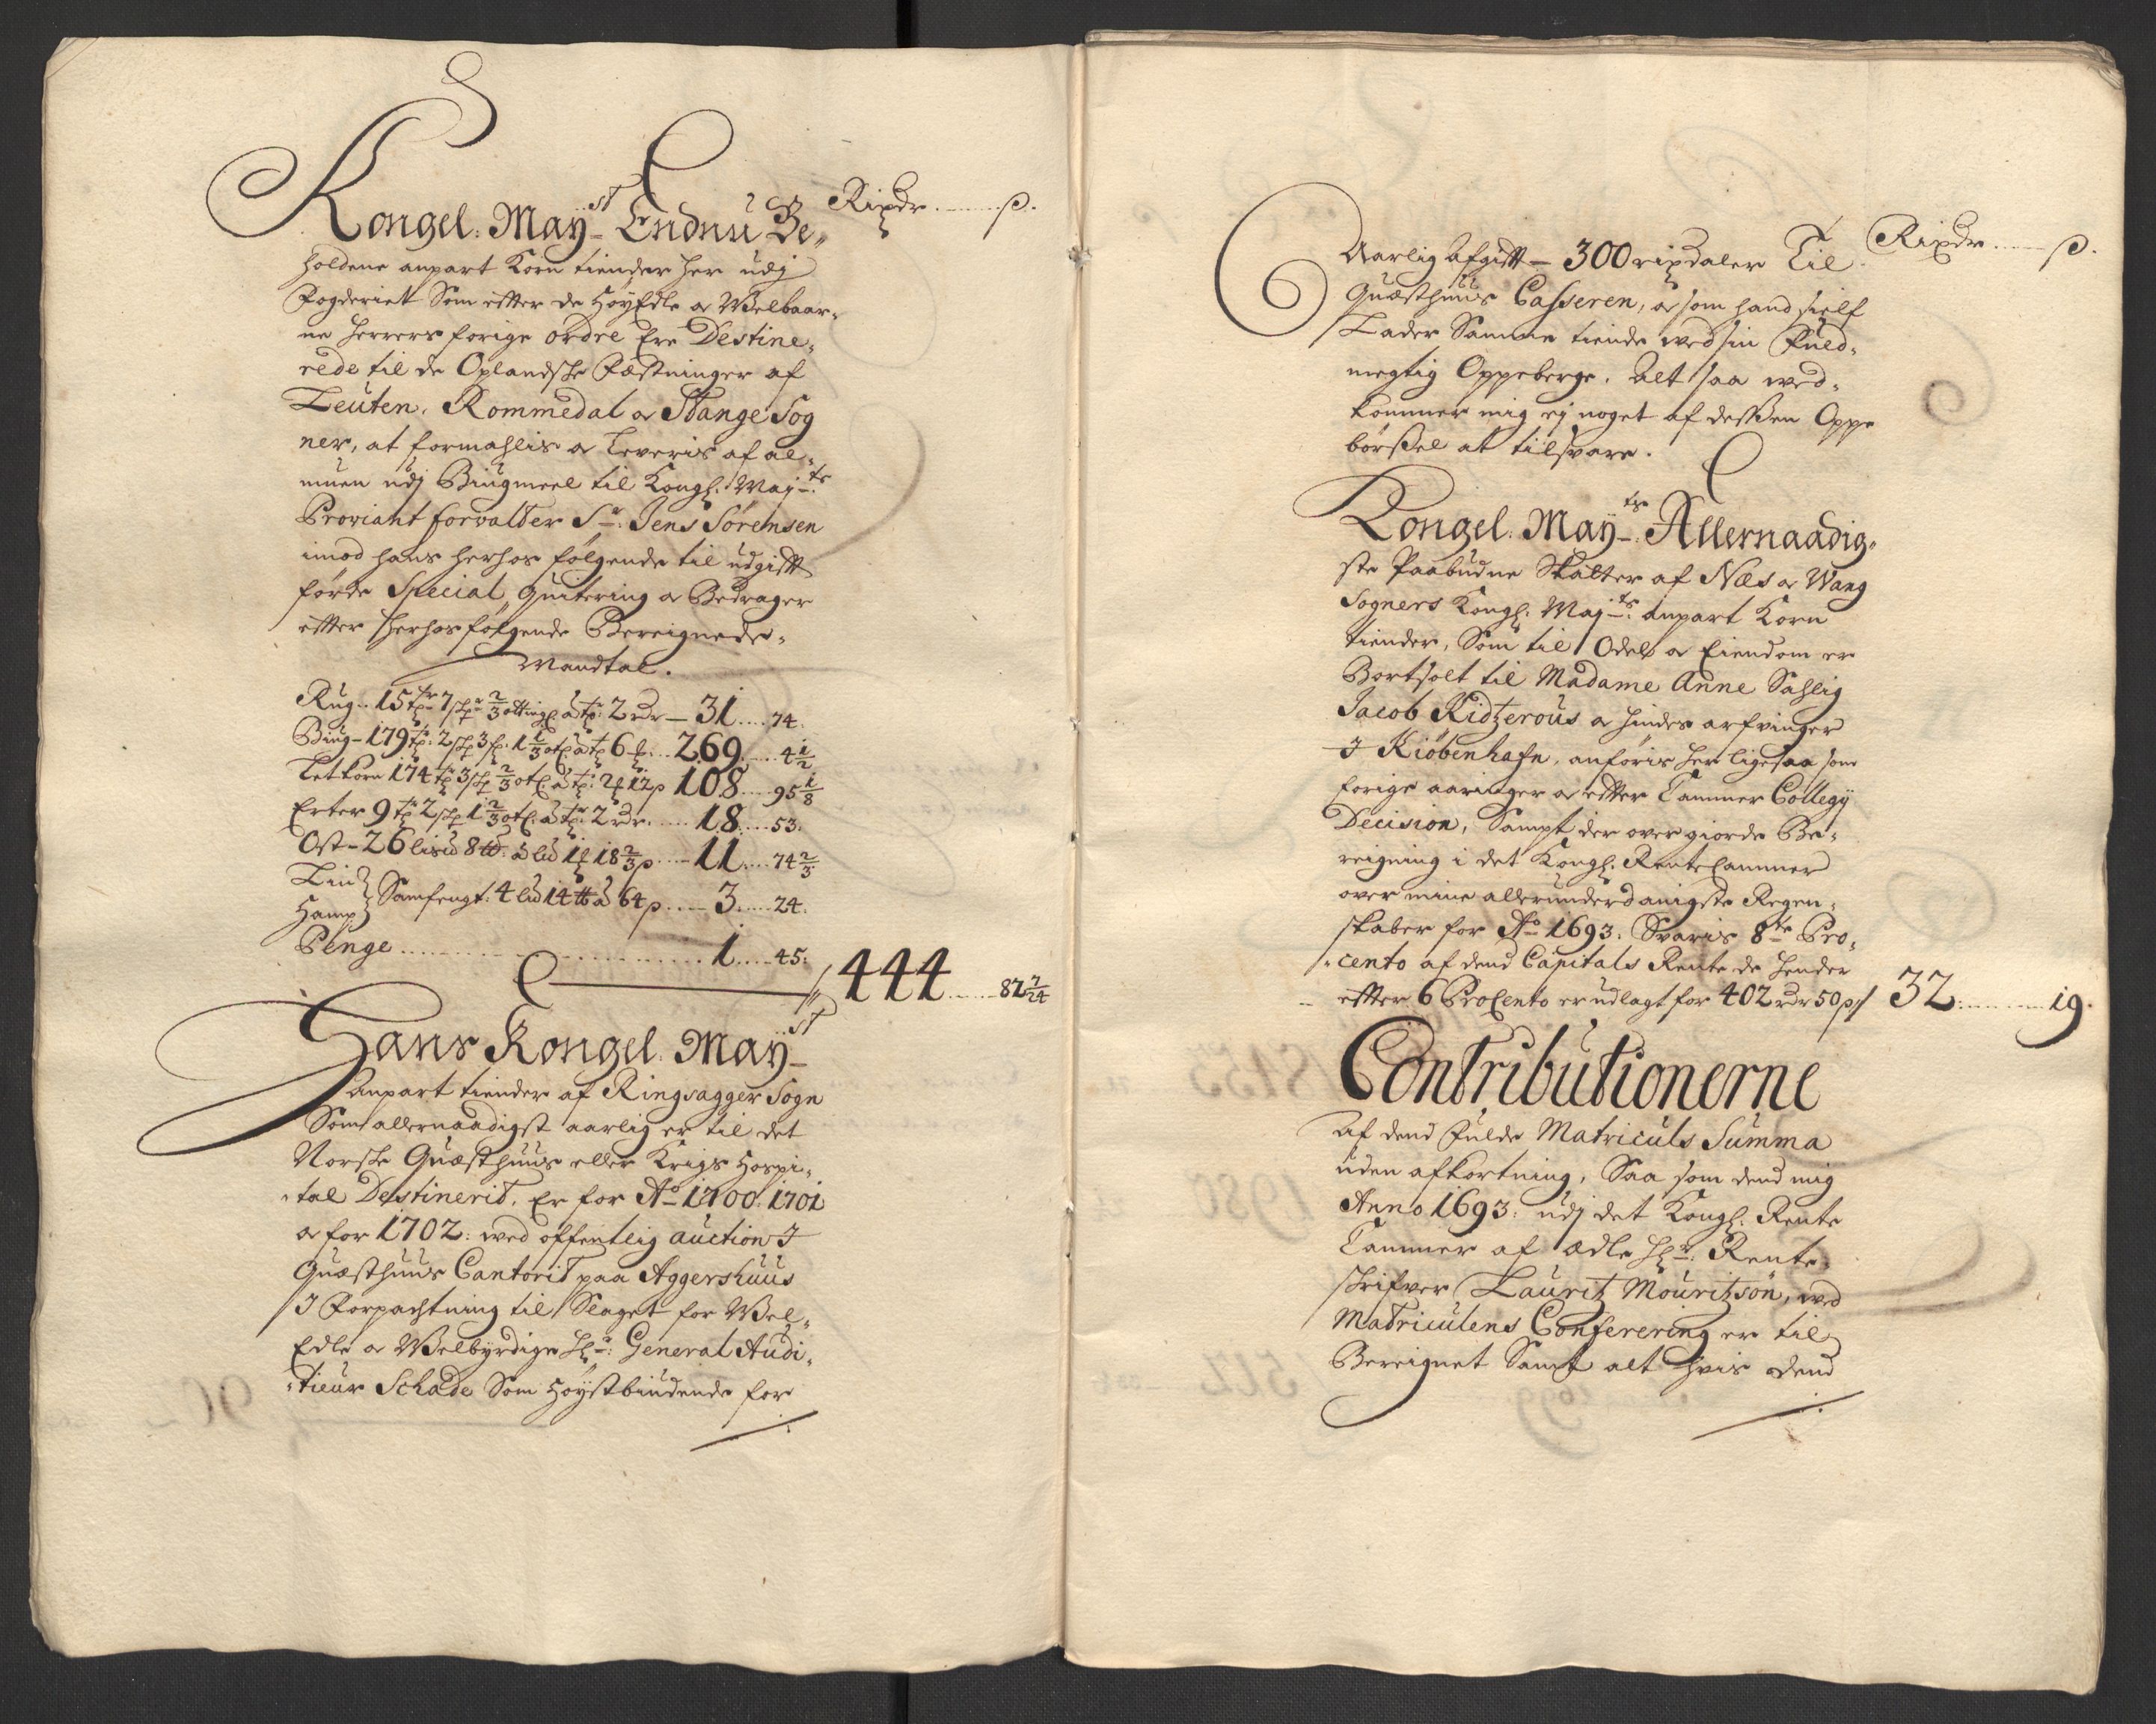 Kongel: May-st Endnu Be„ Rixdr ...... ß.
holdene anpart Korn tiender her udj
Fogderiet Som effter de HøyEdle a Welbaar„
ne Herrers forige ordre Ere Destine„
rede til de Oplandske Fæstninger af
Leuten, Rommedal a Stange Sog
ner, at formahlis a Leveris af al„
muen udj Biugmeel til Kongl: May-ts
Proviant forvalter Sr: Jens Sørensen
imod hans herhos følgende til udgifft
førde Special, Quitering a Bedrager
effter herhosfølgende Bereignede„
Mandtal.
Rug- 15 tr 7 skpr 2/3 otting: à tr: 2 rdr — 31 .... 74.
Biug- 179 tr: 2 skp 3 f: 1 1/3 otl à tr 6 ... 269 .... 4 1/2
Letkorn 174 tr 3 skp 2/3 otl: à tr: 12 ß 108 .... 95 1/8
Erter 9 tr 2 skp 1 2/3 otl: à tr: 2 rdr ..... 18 .... 53.
Ost- 26 lisid 8 tt: à lid 18 2/3 ß ..... 11 .... 74 2/3
Liin
Hamp Samfengt: 4 lid 14 tt à 64 ß ..... 3 ..... 24.
Penge ................ 1 .... 45:
444 ..... 82 7/24
Hans Kongel: May-st
Anpart tiender af Ringsagger Sogn
Som allernaadigst aarlig er til det
Norske Quæsthuus eller Krigs Hospi„
„tal Destinerit, Er for Ao 1700: 1701
a for 1702: ved offentlig auction I
Quæsthuus Cantorit paa Aggershuus
I Forpachtning til Slaget for Wel„
Edle a Welbyrdige Hr: General Audi„
„tieur Schade Som Høystbiudende for
Aarlig Afgifft — 300 rixdaler Til Rixdr ..... ß.
Quæsthuus Casseren, a som hand sielf
Lader Samme tiende ved sin Fuld„
megtig Oppeberge, Alt saa ved„
kommer mig ej noget af dessen Oppe
børssel at tilsvare.
Kongel: May-ts Allernaadig„
ste Paabudne Skatter af Næs a Wang
Sogners Kongl: May-ts anpart Korn
tiender, Som til Odel a Eiendom er
Bortsolt til Madame Anne Sahlig
Jacob Ridtzerous a hindes arfvinger
I Kiøbenhafn, anføris her ligesaa som
forige aaringer a effter Cammer Collegy
Decision, Sampt der over giorde Be„
reigning i det Kongl: RenteCammer
over mine allerunderdanigste Regen„
skaber for Ao 1693: Svaris 8te Pro„
„cento af dend Capitals Rente de hender
effter 6 ProCento er udlagt for 402 rdr 50 ß / 32 .......... 19.
Contributionerne
Af dend Fulde Matriculs Summa
uden afkortning, Saa som dend mig
Anno 1693: udj det Kongl: Rente
Cammer af ædle Hr: Rente„
skrifver Lauritz Mouritzøn, ved
Matriculens Conferering er til
Bereignet Samt alt hvis dend